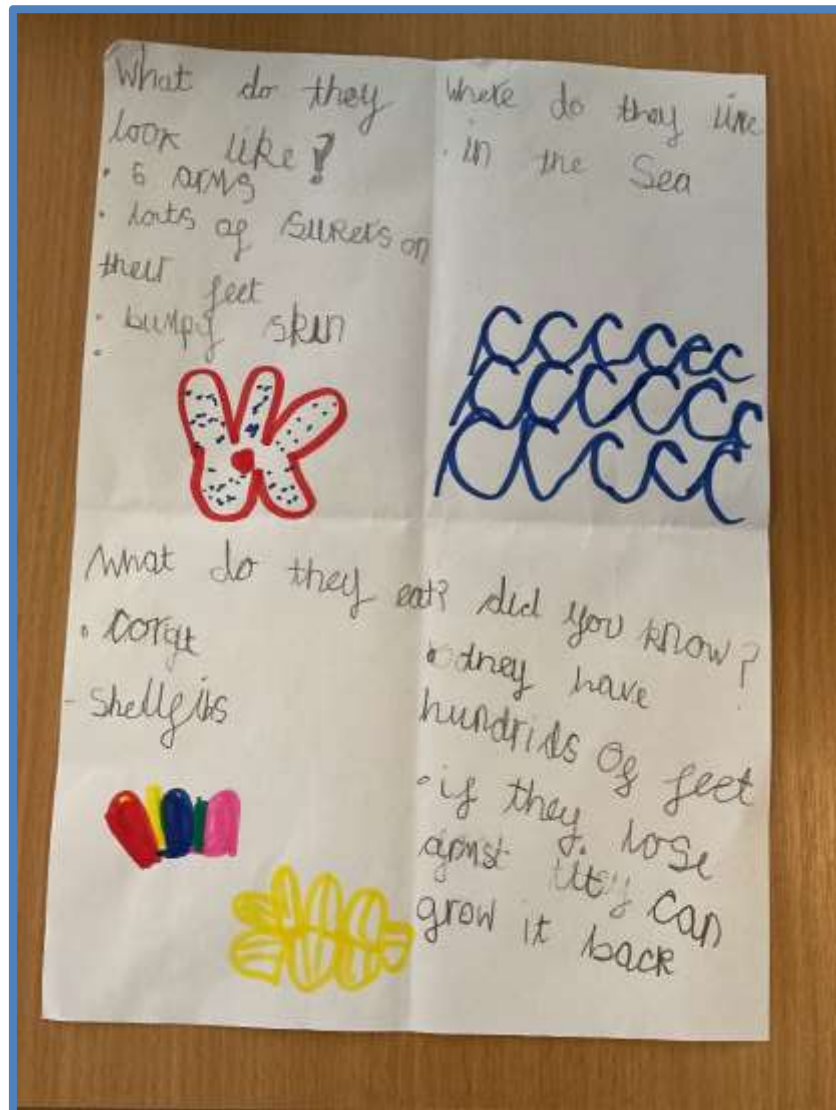 What do they
look like?
• 5 arms
• lots of suckers on
their feet
• bumpy skin
•
Where do they live
• in the Sea
What do they eat?
• coral
- Shellfibs
did you know?
• they have
hundrids of feet
• if they lose
they can
grow it back